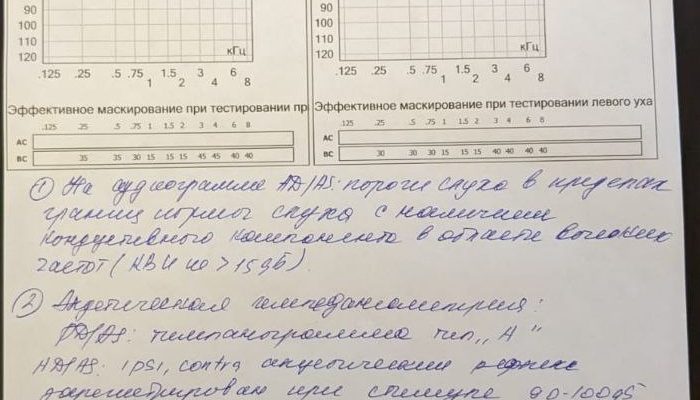 90 90
100 100
110 110
120 кГц 120 кГц
.125 .25 .5 .75 1 1.5 2 3 4 6 8 .125 .25 .5 .75 1 1.5 2 3 4 6 8
Эффективное маскирование при тестировании пр Эффективное маскирование при тестировании левого уха
.125 .25 .5 .75 1 1.5 2 3 4 6 8 .125 .25 .5 .75 1 1.5 2 3 4 6 8
AC AC
BC 35 35 30 15 15 15 45 45 40 40 BC 30 30 30 15 15 15 40 40 40 40
① На аудиограмме AD/AS: пороги слуха в пределах
границ нормы слуха с наличием
кондуктивного компонента в области высоких
частот (КВИ не > 15 дБ).
② Акустическая импедансометрия:
AD/AS: тимпанограмма тип „А"
AD/AS: ipsi, contra акустический рефлекс
зарегистрирован при стимуле 90-100 дБ